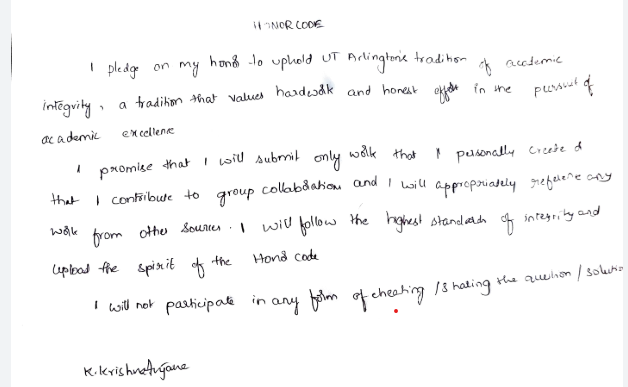 HONOR CODE
I pledge on my honor to uphold UT Arlington's tradition of academic
integrity, a tradition that values hardwork and honest effort in the pursuit of
academic excellence
I promise that I will submit only work that I personally create d
that I contribute to group collaboration and I will appropriately reference any
work from other sources. I will follow the highest standards of integrity and
upload the spirit of the Honor code
I will not participate in any form of cheating / sharing the question / solution